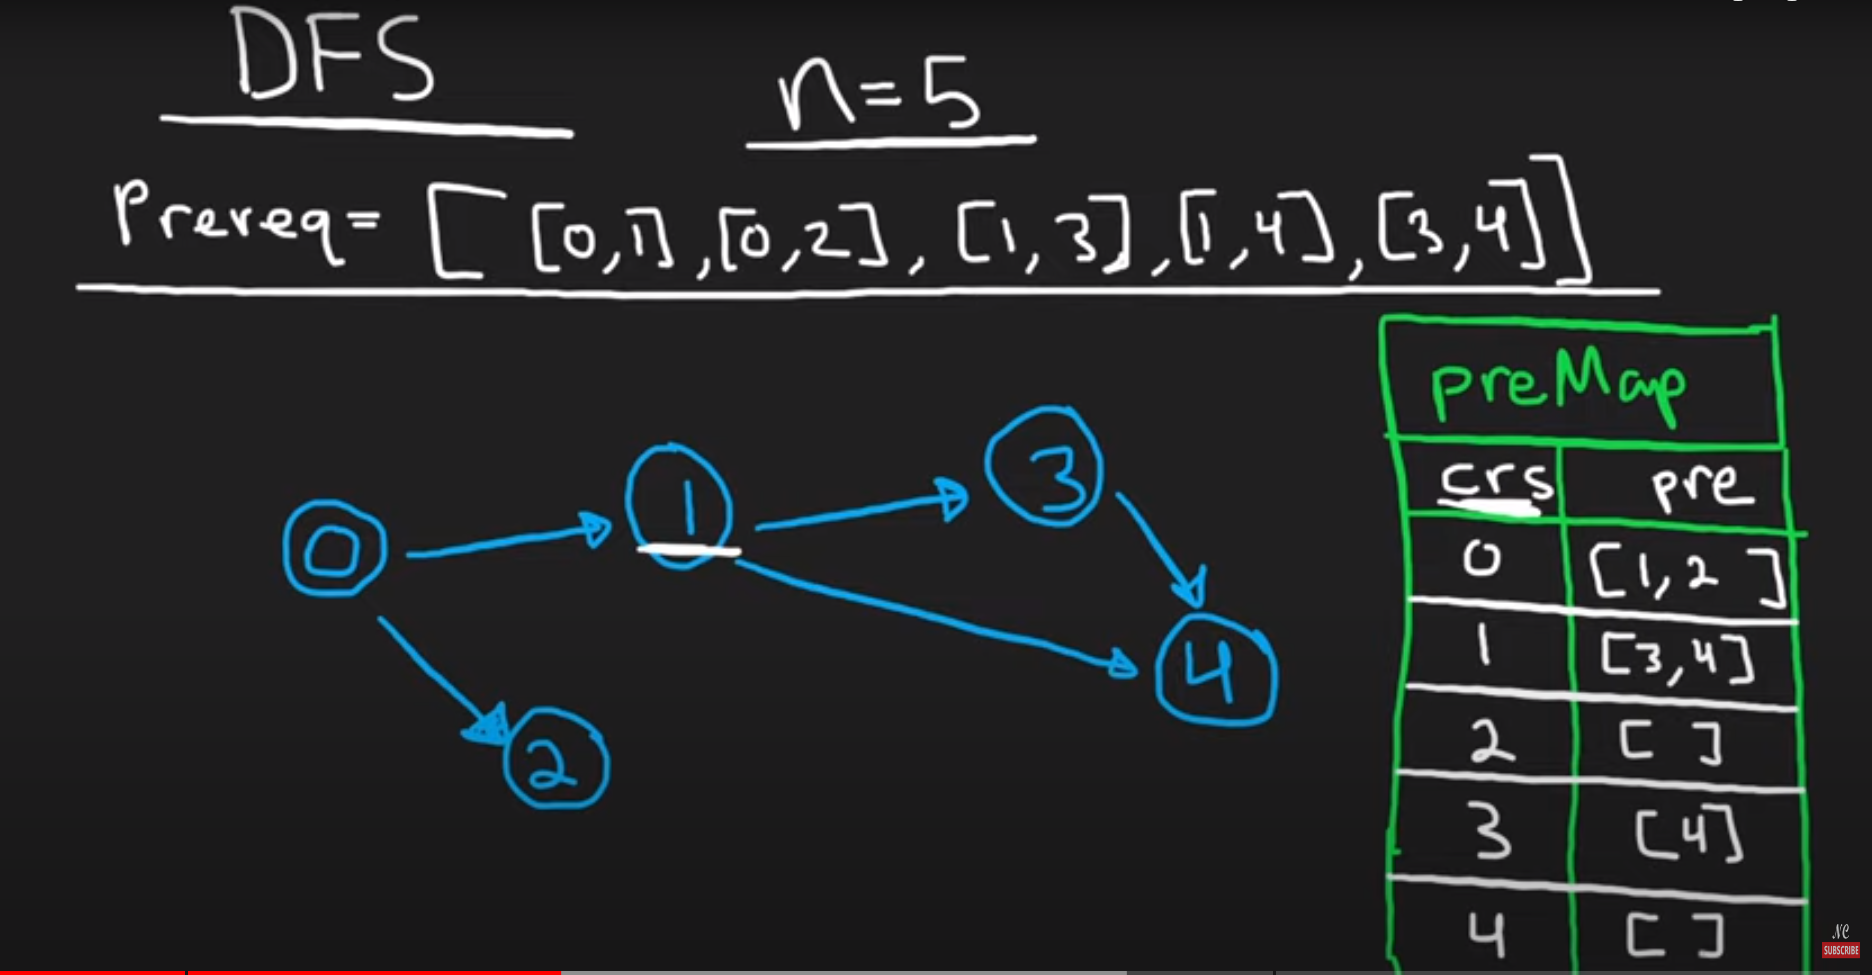 DFS
n=5
Prereq= [ [0,1],[0,2], [1,3],[1,4],[3,4]]
preMap
crs pre
0 [1,2 ]
1 [3,4]
2 [ ]
3 [4]
4 [ ]
0
1
3
4
2
NC
SUBSCRIBE